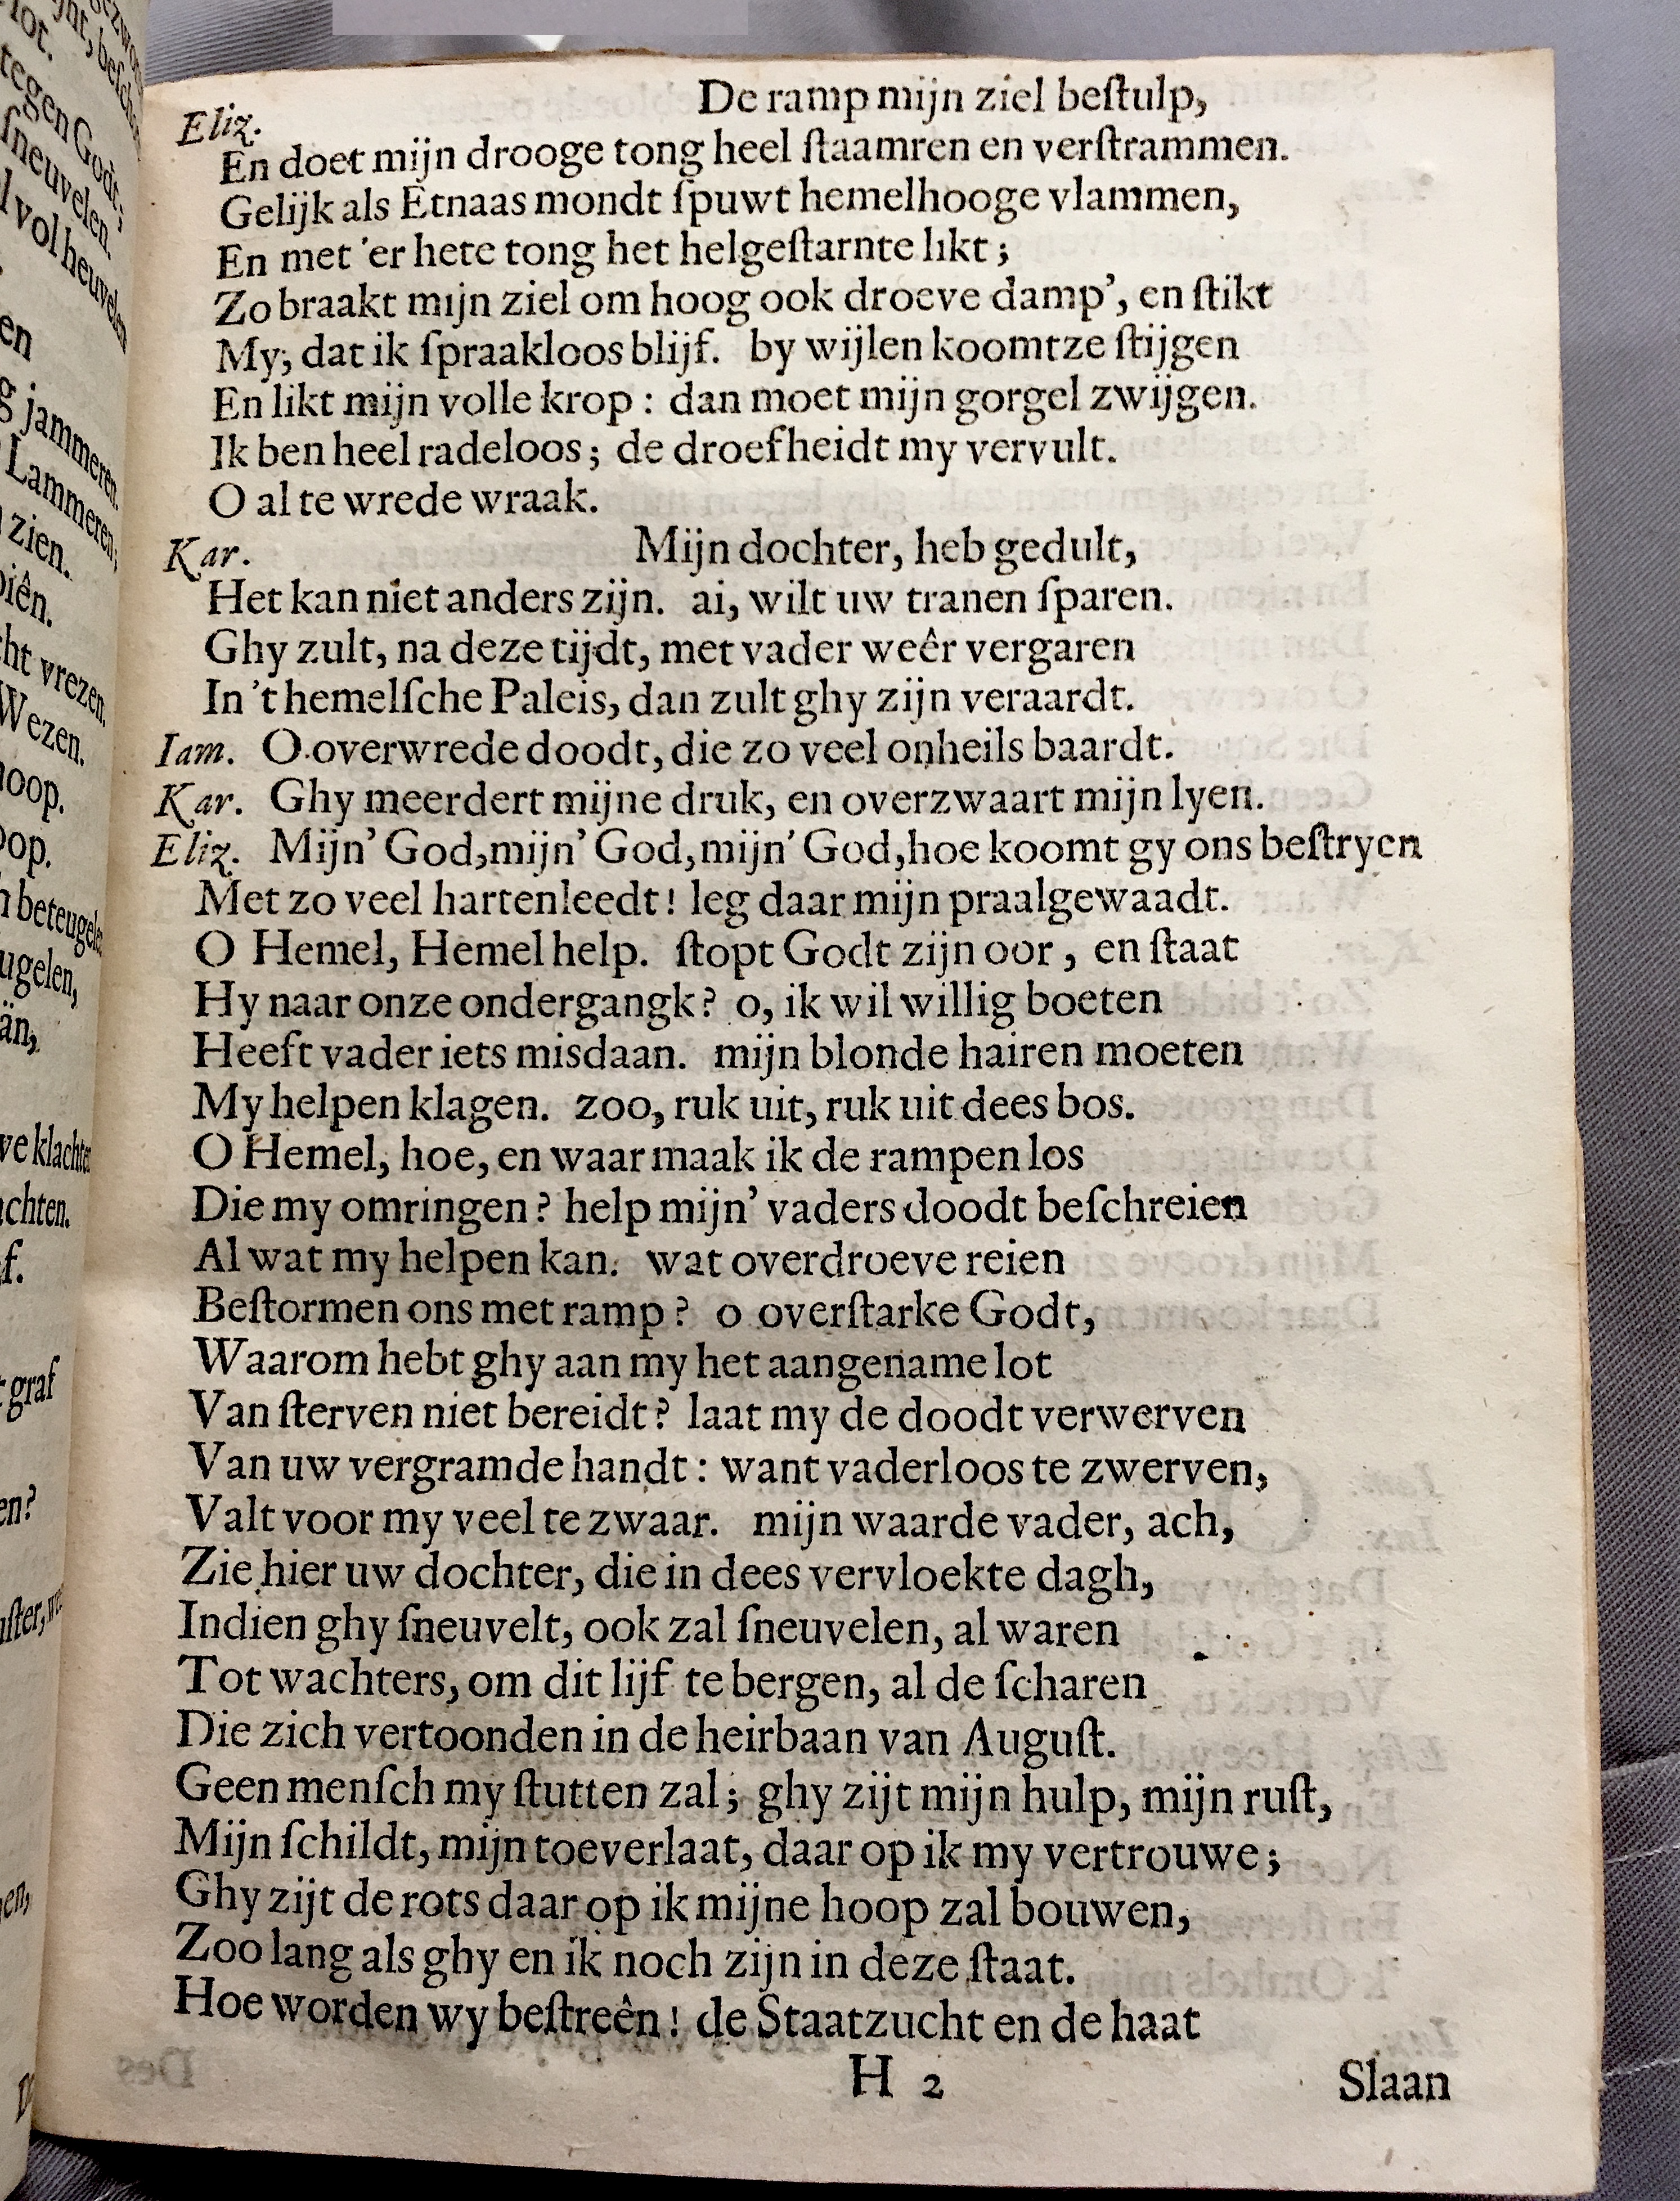 Eliz. De ramp mijn ziel beſtulp,
En doet mijn drooge tong heel ſtaamren en verſtrammen.
Gelijk als Etnaas mondt ſpuwt hemelhooge vlammen,
En met 'er hete tong het helgeſtarnte likt;
Zo braakt mijn ziel om hoog ook droeve damp', en ſtikt
My, dat ik ſpraakloos blijf. by wijlen koomtze ſtijgen
En likt mijn volle krop : dan moet mijn gorgel zwijgen.
Ik ben heel radeloos; de droefheidt my vervult.
O al te wrede wraak.
Kar. Mijn dochter, heb gedult,
Het kan niet anders zijn. ai, wilt uw tranen ſparen.
Ghy zult, na deze tijdt, met vader weêr vergaren
In 't hemelſche Paleis, dan zult ghy zijn veraardt.
Iam. O overwrede doodt, die zo veel onheils baardt.
Kar. Ghy meerdert mijne druk, en overzwaart mijn lyen.
Eliz. Mijn' God, mijn' God, mijn' God, hoe koomt gy ons beſtryen
Met zo veel hartenleedt! leg daar mijn praalgewaadt.
O Hemel, Hemel help. ſtopt Godt zijn oor, en ſtaat
Hy naar onze ondergangk? o, ik wil willig boeten
Heeft vader iets misdaan. mijn blonde hairen moeten
My helpen klagen. zoo, ruk uit, ruk uit dees bos.
O Hemel, hoe, en waar maak ik de rampen los
Die my omringen? help mijn' vaders doodt beſchreien
Al wat my helpen kan. wat overdroeve reien
Beſtormen ons met ramp? o overſtarke Godt,
Waarom hebt ghy aan my het aangename lot
Van ſterven niet bereidt? laat my de doodt verwerven
Van uw vergramde handt: want vaderloos te zwerven,
Valt voor my veel te zwaar. mijn waarde vader, ach,
Zie hier uw dochter, die in dees vervloekte dagh,
Indien ghy ſneuvelt, ook zal ſneuvelen, al waren
Tot wachters, om dit lijf te bergen, al de ſcharen
Die zich vertoonden in de heirbaan van Auguſt.
Geen menſch my ſtutten zal; ghy zijt mijn hulp, mijn ruſt,
Mijn ſchildt, mijn toeverlaat, daar op ik my vertrouwe;
Ghy zijt de rots daar op ik mijne hoop zal bouwen,
Zoo lang als ghy en ik noch zijn in deze ſtaat.
Hoe worden wy beſtreên! de Staatzucht en de haat
H 2 Slaan